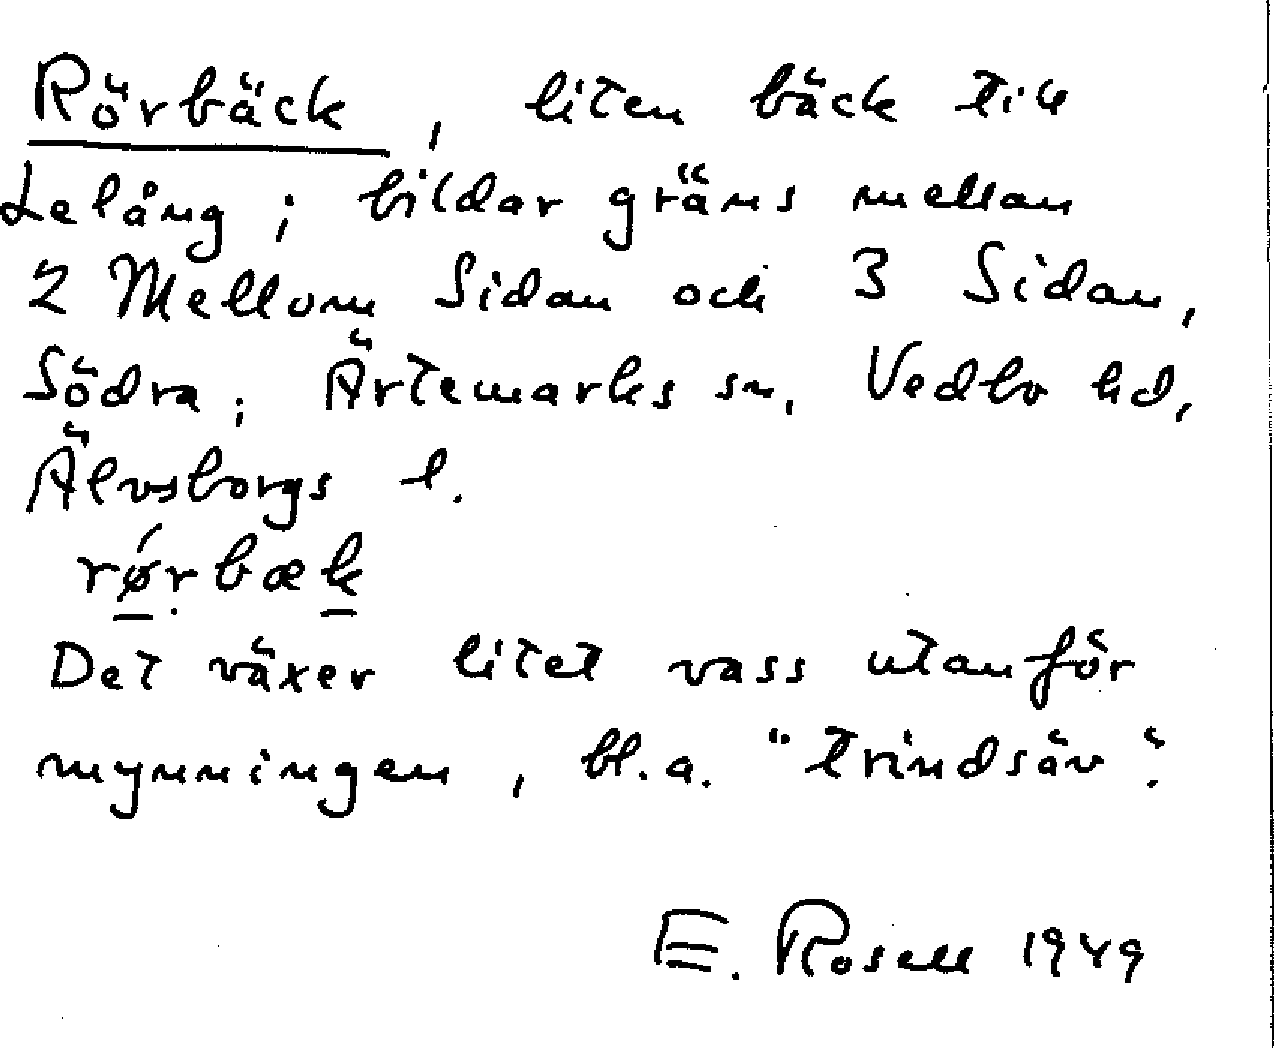 Rörbäck, liten bäck till
Lelång; bildar gräns mellan
2 Mellom Sidan och 3 Sidan,
Södra; Ärtemarks sn, Vedbo hd,
Älvsborgs l.
rǿrbæk
Det växer litet vass utanför
mynningen, bl.a. "trindsäv".
E. Rosell 1949